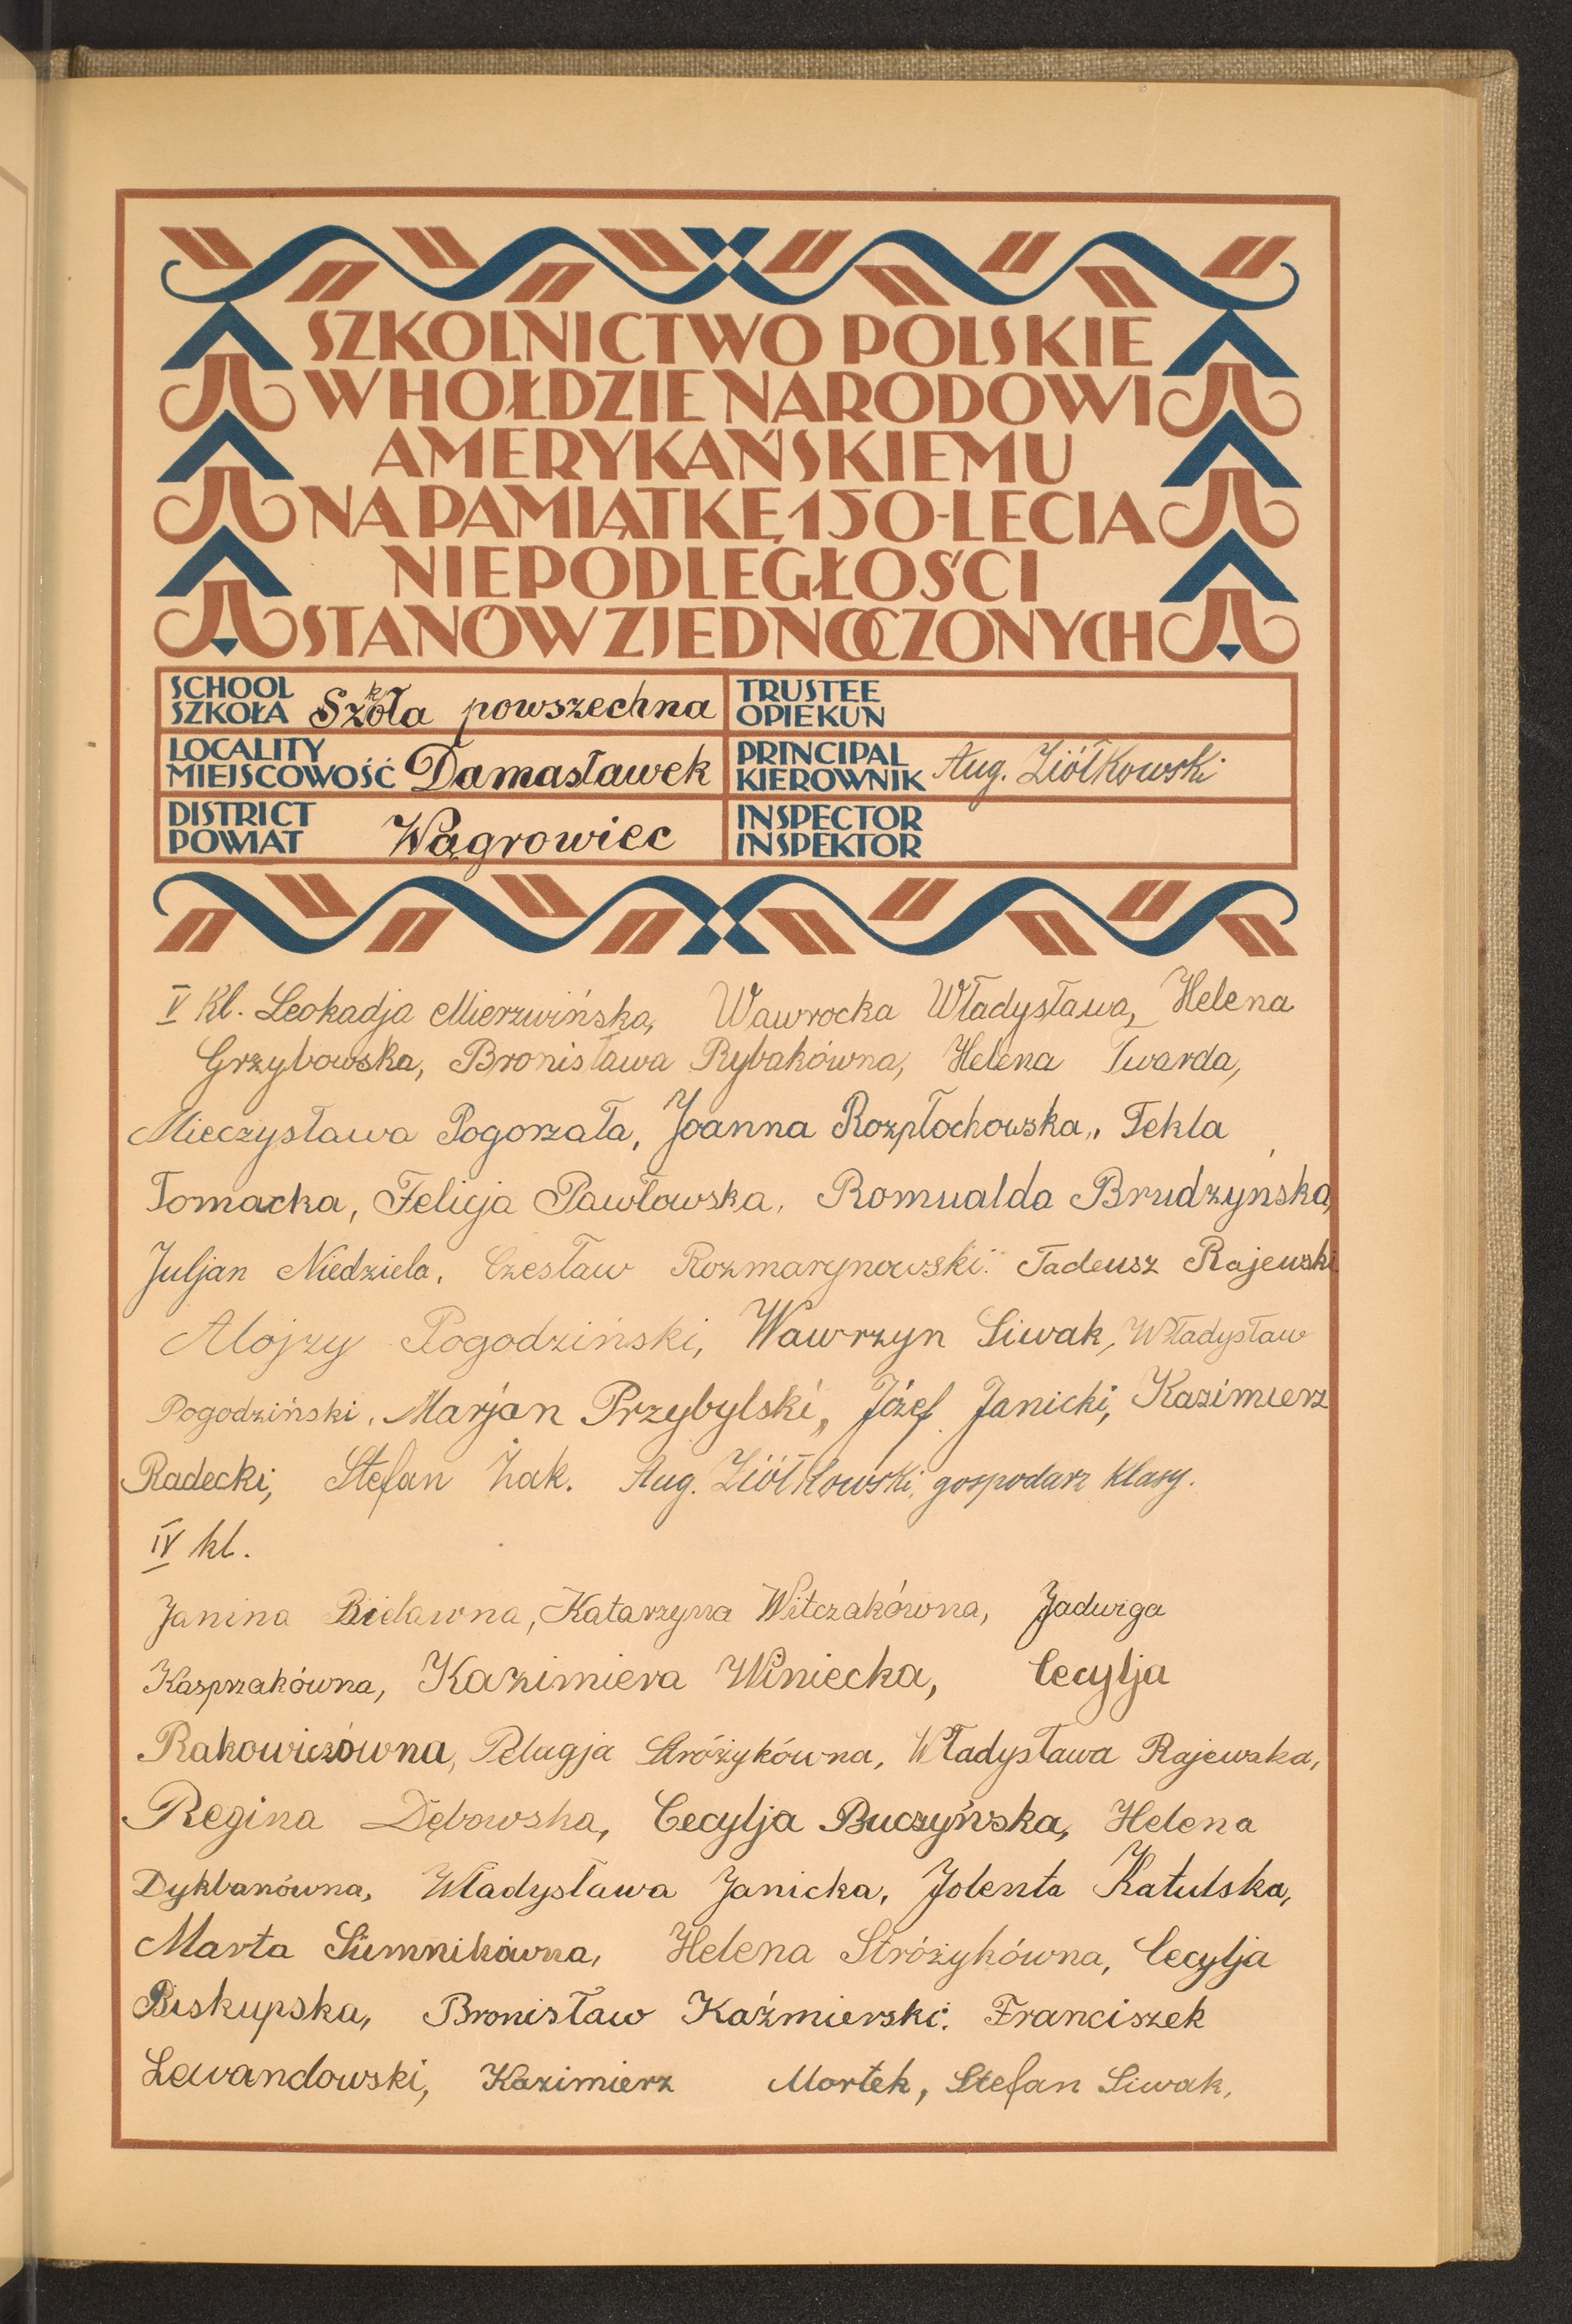 SZKOLNICTWO POLSKIE
W HOŁDZIE NARODOWI
AMERYKAŃSKIEMU
NA PAMIĄTKĘ 150-LECIA
NIEPODLEGŁOŚCI
STANÓW ZJEDNOCZONYCH
SCHOOL
SZKOŁA Szkoła powszechna
TRUSTEE
OPIEKUN
LOCALITY
MIEJSCOWOŚĆ Damasławek
PRINCIPAL
KIEROWNIK Aug. Ziółkowski
DISTRICT
POWIAT Wągrowiec
INSPECTOR
INSPEKTOR
V kl. Leokadja Mierzwińska, Wawrocka Władysława, Helena
Grzybowska, Bronisława Rybakówna, Helena Twarda,
Mieczysława Pogorzała, Joanna Rozpłochowska,, Tekla
Tomacka, Felicja Pawłowska, Romualda Brudzyńska,
Juljan Niedziela, Czesław Rozmarynowski. Tadeusz Rajewski
Alojzy Pogodziński, Wawrzyn Siwak, Władysław
Pogodziński, Marjan Przybylski,, Józef Janicki, Kazimierz
Radecki, Stefan Żak. Aug. Ziółkowski, gospodarz klasy.
IV kl.
Janina Bielawna, Katarzyna Witczakówna, Jadwiga
Kasprzakówna, Kazimiera Winiecka, Cecylja
Rakowiczówna, Pelagja Stróżykówna, Władysława Rajewska,
Regina Dębowska, Cecylja Buczyńska, Helena
Dykbanówna, Władysława Janicka, Jolenta Katulska,
Marta Sümnikówna, Helena Stróżykówna, Cecylja
Biskupska, Bronisław Kaźmierski. Franciszek
Lewandowski, Kazimierz Mortek, Stefan Siwak,